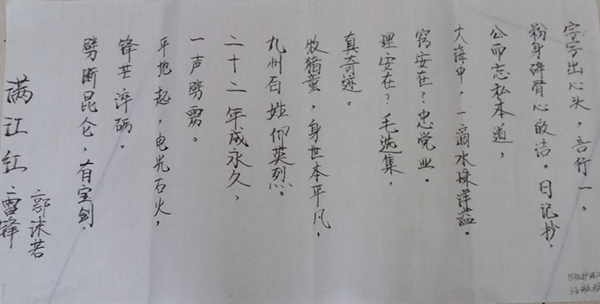 满江红 雷锋
郭沫若
劈断昆仑,有宝剑,
锋芒淬砺。
平地起,电光石火,
一声劈雳。
二十二年成永久,
九州百姓仰英烈。
牧猪童,身世本平凡,
真奇迹。
理安在?毛选集,
窍安在?忠党业。
大海中,一滴水珠洋溢。
公而忘私本道,
粉身碎骨心皎洁。日记抄,
字字出心头,言行一。